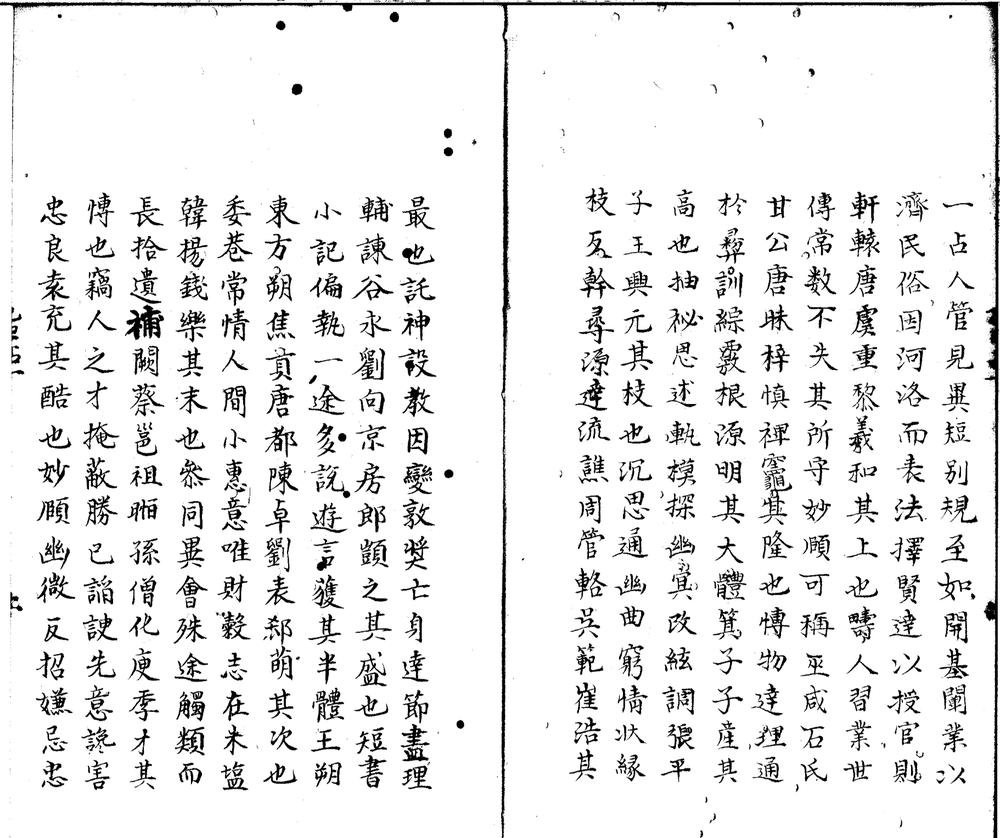 一占人管見異短別規至如開基闡業以
濟民俗因河洛而表法擇賢達以授官則
軒轅唐虞重黎羲和其上也疇人習業世
傳常数不失其所守妙賾可稱巫咸石氏
甘公唐昧梓慎裨竈其隆也博物達理通
於彛訓綜覈根源明其大體箕子子産其
高也抽祕思述軌模探幽㝠改絃調張平
子王興元其枝也沉思通幽曲窮情状縁
枝反幹尋源達流譙周管輅吳範崔浩其
最也託神設教因變敦奬亡身達節盡理
輔諫谷永劉向京房郎顗之其盛也短書
小記偏執一途多說遊言獲其半體王朔
東方朔焦貢唐都陳卓劉表郄萌其次也
委巷常情人間小惠意唯財穀志在米塩
韓揚錢樂其末也叅同異會殊途觸類而
長拾遺補闕蔡邕祖暅孫僧化庾季才其
博也竊人之才掩蔽勝己諂諛先意讒害
忠良袁充其酷也妙賾幽微反招嫌忌忠